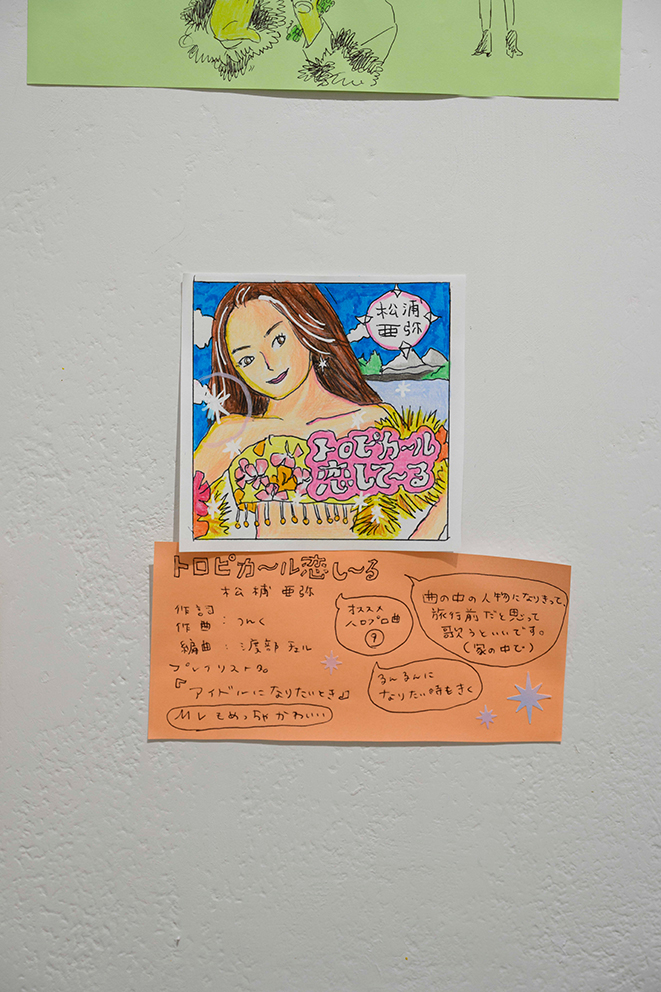 松浦
亜弥
トロピカ〜ル
恋して〜る
トロピカ〜ル恋し〜る
松浦亜弥
作詞
作曲：つんく
編曲：渡部チェル
プレイリスト名
『アイドルになりたいとき』
MVもめっちゃかわいい
オススメ
ハロプロ曲
⑨
曲の中の人物になりきって、
旅行前だと思って
歌うといいです。
(家の中で)
るんるんに
なりたい時もきく